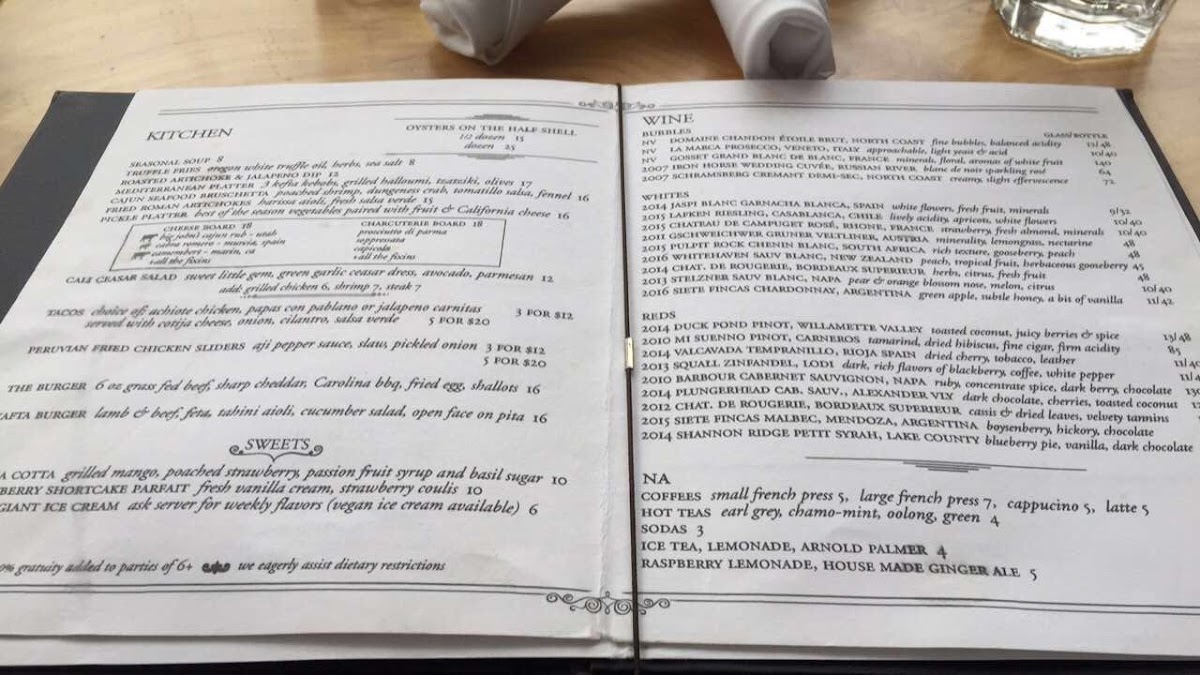 KITCHEN
OYSTERS ON THE HALF SHELL
1/2 dozen 15
dozen 25
SEASONAL SOUP 8
TRUFFLE FRIES oregon white truffle oil, herbs, sea salt 8
ROASTED ARTICHOKE & JALAPENO DIP 12
MEDITERRANEAN PLATTER 3 kefta kebobs, grilled halloumi, tzatziki, olives 17
CAJUN SEAFOOD BRUSCHETTA poached shrimp, dungeness crab, tomatillo salsa, fennel 16
FRIED ROMAN ARTICHOKES harissa aioli, fresh salsa verde 15
PICKLE PLATTER best of the season vegetables paired with fruit & California cheese 16
CHEESE BOARD 18
big john's cajun rub - utah
cabra romero - murcia, spain
camembert - marin, ca
+all the fixins
CHARCUTERIE BOARD 18
prosciutto di parma
soppressata
capicola
+all the fixins
CALI CEASAR SALAD sweet little gem, green garlic ceasar dress, avocado, parmesan 12
add: grilled chicken 6, shrimp 7, steak 7
TACOS choice of: achiote chicken, papas con pablano or jalapeno carnitas 3 FOR $12
served with cotija cheese, onion, cilantro, salsa verde 5 FOR $20
PERUVIAN FRIED CHICKEN SLIDERS aji pepper sauce, slaw, pickled onion 3 FOR $12
5 FOR $20
THE BURGER 6 oz grass fed beef, sharp cheddar, Carolina bbq, fried egg, shallots 16
AFTA BURGER lamb & beef, feta, tahini aioli, cucumber salad, open face on pita 16
SWEETS
A COTTA grilled mango, poached strawberry, passion fruit syrup and basil sugar 10
BERRY SHORTCAKE PARFAIT fresh vanilla cream, strawberry coulis 10
GIANT ICE CREAM ask server for weekly flavors (vegan ice cream available) 6
0% gratuity added to parties of 6+ we eagerly assist dietary restrictions
WINE
BUBBLES GLASS/BOTTLE
NV DOMAINE CHANDON ÉTOILE BRUT, NORTH COAST fine bubbles, balanced acidity 13/48
NV LA MARCA PROSECCO, VENETO, ITALY approachable, light yeast & acid 10/40
NV GOSSET GRAND BLANC DE BLANC, FRANCE minerals, floral, aromas of white fruit 140
2007 IRON HORSE WEDDING CUVÉE, RUSSIAN RIVER, blanc de noir sparkling rosé 64
2007 SCHRAMSBERG CREMANT DEMI-SEC, NORTH COAST creamy, slight effervescence 72
WHITES
2014 JASPI BLANC GARNACHA BLANCA, SPAIN white flowers, fresh fruit, minerals 9/32
2015 LAFKEN RIESLING, CASABLANCA, CHILE lively acidity, apricot, white flowers 10/40
2015 CHATEAU DE CAMPUGET ROSÉ, RHONE, FRANCE strawberry, fresh almond, minerals 10/40
2011 GSCHWEICHER GRUNER VELTLINER, AUSTRIA minerality, lemongrass, nectarine 48
2015 PULPIT ROCK CHENIN BLANC, SOUTH AFRICA rich texture, gooseberry, peach 48
2016 WHITEHAVEN SAUV BLANC, NEW ZEALAND peach, tropical fruit, herbaceous gooseberry 45
2014 CHAT. DE ROUGERIE, BORDEAUX SUPERIEUR herbs, citrus, fresh fruit 48
2013 STELZNER SAUV BLANC, NAPA pear & orange blossom nose, melon, citrus 10/40
2016 SIETE FINCAS CHARDONNAY, ARGENTINA green apple, subtle honey, a bit of vanilla 11/42
REDS
2014 DUCK POND PINOT, WILLAMETTE VALLEY toasted coconut, juicy berries & spice 13/48
2010 MI SUENNO PINOT, CARNEROS tamarind, dried hibiscus, fine cigar, firm acidity 85
2014 VALCAVADA TEMPRANILLO, RIOJA SPAIN dried cherry, tobacco, leather 11/40
2013 SQUALL ZINFANDEL, LODI dark, rich flavors of blackberry, coffee, white pepper
2010 BARBOUR CABERNET SAUVIGNON, NAPA ruby, concentrate spice, dark berry, chocolate
2014 PLUNGERHEAD CAB. SAUV., ALEXANDER VLY dark chocolate, cherries, toasted coconut
2012 CHAT. DE ROUGERIE, BORDEAUX SUPERIEUR cassis & dried leaves, velvety tannins
2015 SIETE FINCAS MALBEC, MENDOZA, ARGENTINA boysenberry, hickory, chocolate
2014 SHANNON RIDGE PETIT SYRAH, LAKE COUNTY blueberry pie, vanilla, dark chocolate
NA
COFFEES small french press 5, large french press 7, cappucino 5, latte 5
HOT TEAS earl grey, chamo-mint, oolong, green 4
SODAS 3
ICE TEA, LEMONADE, ARNOLD PALMER 4
RASPBERRY LEMONADE, HOUSE MADE GINGER ALE 5